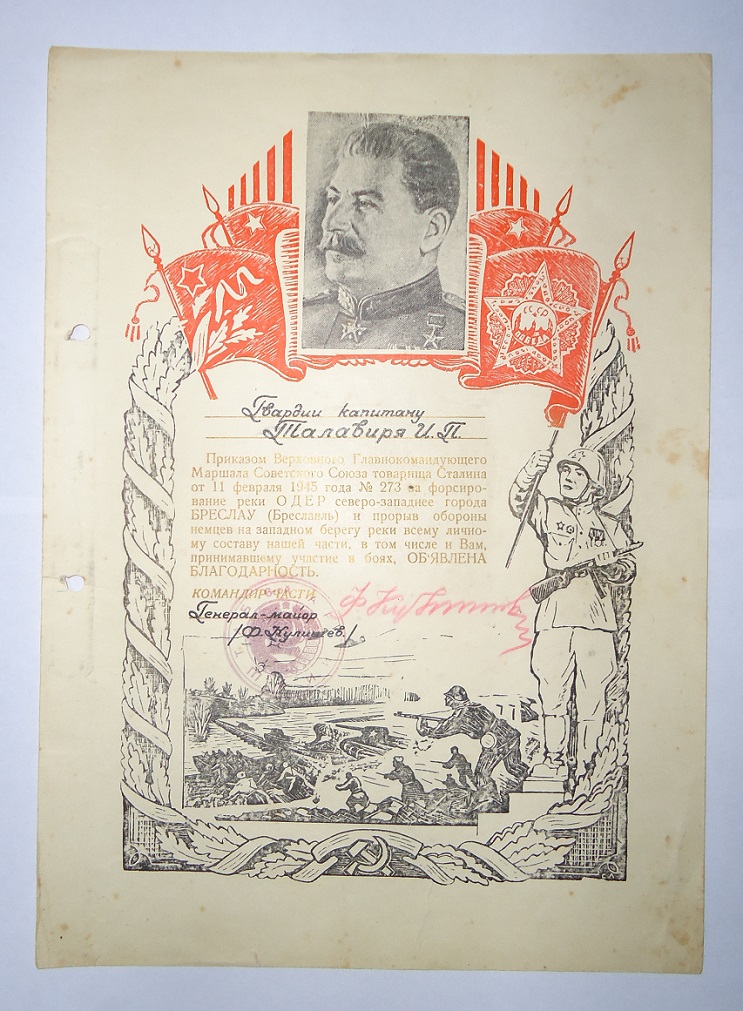 СССР
ПОБЕДА
Гвардии капитану
Талавиря И.П.
Приказом Верховного Главнокомандующего
Маршала Советского Союза товарища Сталина
от 11 февраля 1945 года № 273 за форсиро-
вание реки ОДЕР северо-западнее города
БРЕСЛАУ (Бреславль) и прорыв обороны
немцев на западном берегу реки всему лично-
му составу нашей части, в том числе и Вам,
принимавшему участие в боях, ОБ'ЯВЛЕНА
БЛАГОДАРНОСТЬ.
КОМАНДИР ЧАСТИ
Генерал-майор
/Ф.Кулишев/